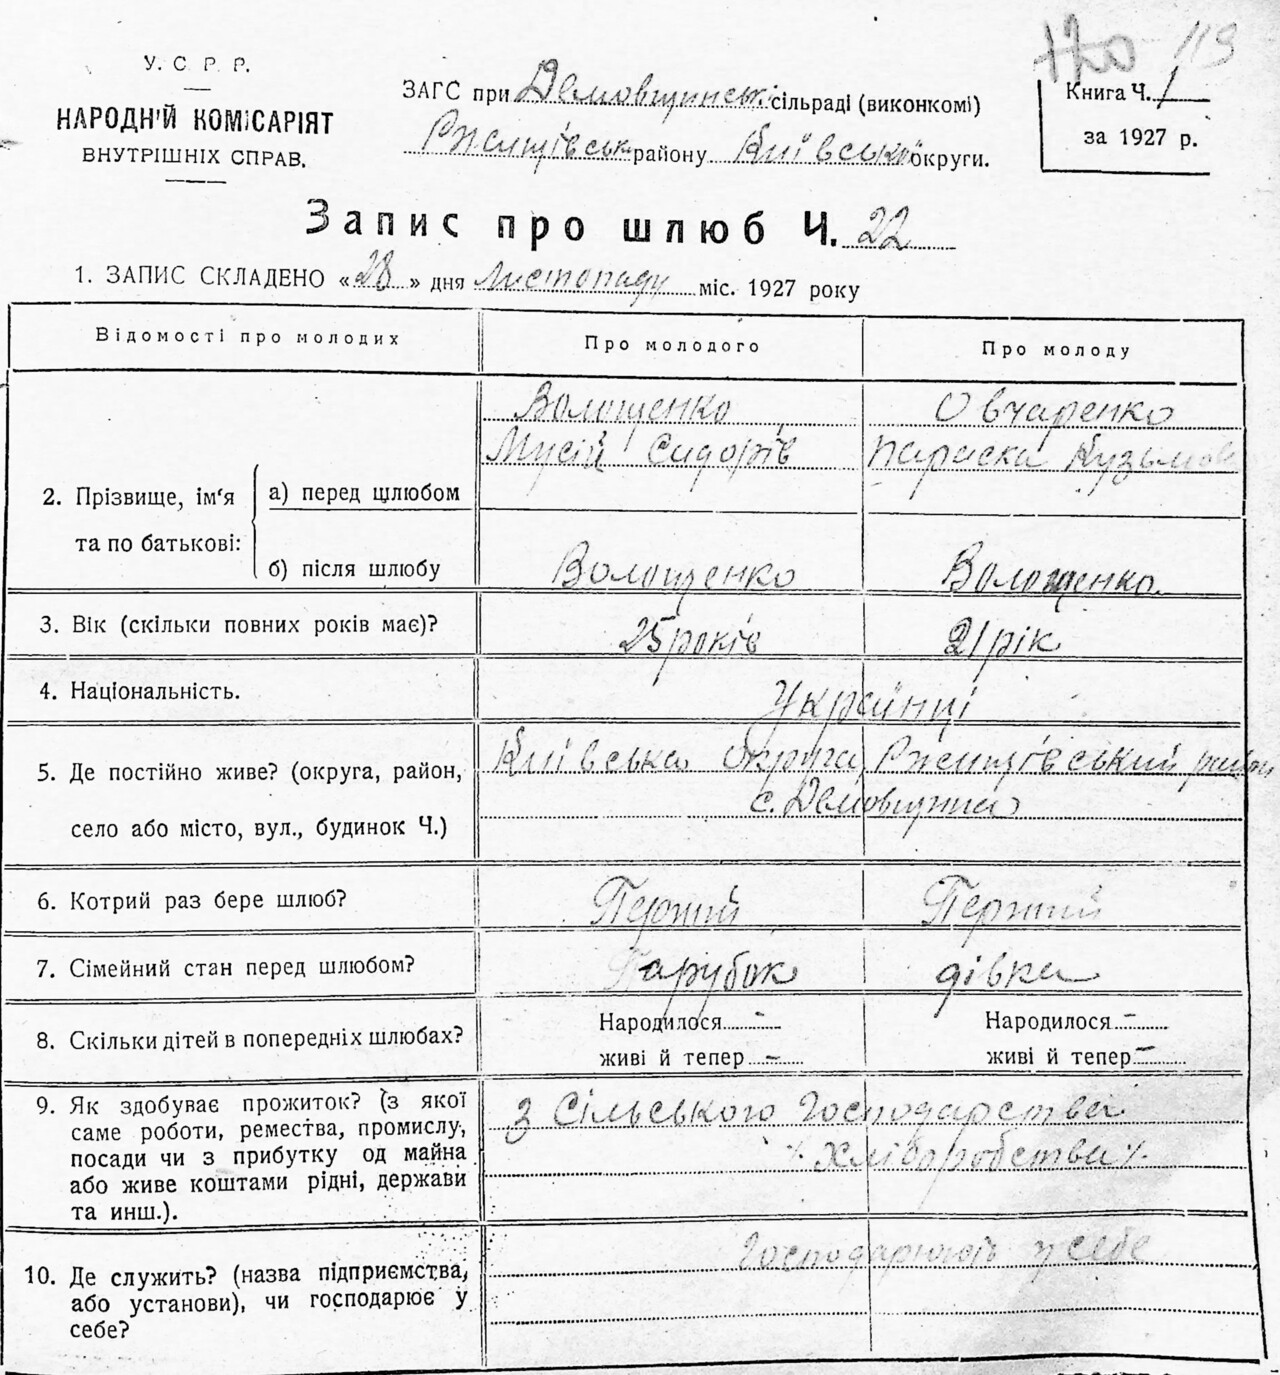 120 119
У. С. Р. Р.
НАРОДНІЙ КОМІСАРІЯТ
ВНУТРІШНІХ СПРАВ.
ЗАГС при Демовщинські сільраді (виконкомі)
Ржищівськ району Київської округи.
Книга Ч. 1
за 1927 р.
Запис про шлюб Ч. 22
1. ЗАПИС СКЛАДЕНО «28» дня Листопаду міс. 1927 року
Відомості про молодих
Про молодого
Про молоду
2. Прізвище, ім'я
та по батькові:
а) перед шлюбом
Волощенко
Мусій Сидорів
Овчаренко
Параска Кузьмов
б) після шлюбу
Волощенко
Волощенко
3. Вік (скільки повних років має)?
25 років
21 рік
4. Національність.
Українці
5. Де постійно живе? (округа, район,
село або місто, вул., будинок Ч.)
Київська округа, Ржищівський район
с. Демовщина
6. Котрий раз бере шлюб?
Перший
Перший
7. Сімейний стан перед шлюбом?
Парубок
дівка
8. Скільки дітей в попередніх шлюбах?
Народилося -
живі й тепер -
Народилося -
живі й тепер -
9. Як здобуває прожиток? (з якої
саме роботи, ремества, промислу,
посади чи з прибутку од майна
або живе коштами рідні, держави
та инш.).
з Сільського Господарства
% Хліборобства %
10. Де служить? (назва підприємства,
або установи), чи господарює у
себе?
Господарюють у себе